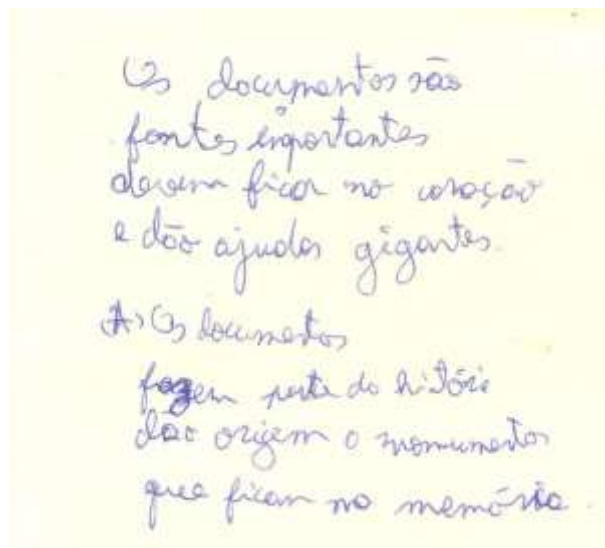 Os documentos são
fontes importantes
devem ficar no coração
e dão ajudas gigantes.
Os documentos
fazem parte da história
dão origem a monumentos
que ficam na memória.